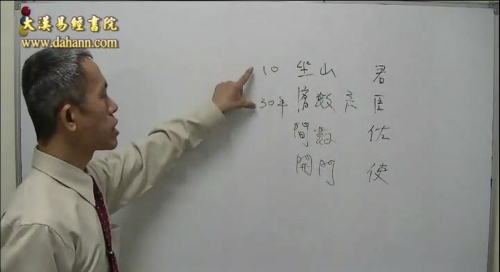 大漢易經書院
www.dahann.com
10 坐山 君
30年 層數 高 臣
間數 佐
開門 使